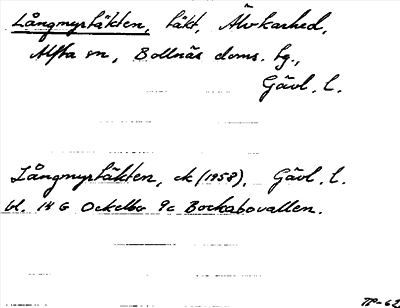 Långmyrtäkten, täkt, Älvkarhed,
Alfta sn, Bollnäs doms. tg.,
Gävl. l.
Långmyrtäkten, ek (1958), Gävl. l.
bl. 14 G Ockelbo 9c Bockabovallen.
TP-62